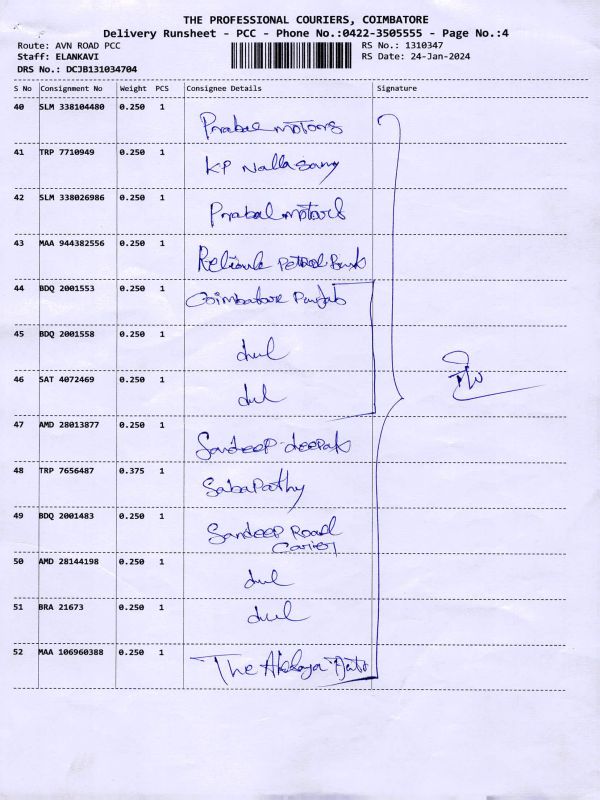 THE PROFESSIONAL COURIERS, COIMBATORE
Delivery Runsheet - PCC - Phone No.:0422-3505555 - Page No.:4
Route: AVN ROAD PCC RS No.: 1310347
Staff: ELANKAVI RS Date: 24-Jan-2024
DRS No.: DCJB131034704
S No Consignment No Weight PCS Consignee Details Signature
40 SLM 338104480 0.250 1
Prabal motors
41 TRP 7710949 0.250 1
KP Nallasamy
42 SLM 338026986 0.250 1
Prabal motors
43 MAA 944382556 0.250 1
Petrol Bunk
44 BDQ 2001553 0.250 1
Coimbatore Punjab
45 BDQ 2001558 0.250 1
46 SAT 4072469 0.250 1
47 AMD 28013877 0.250 1
Sandeep deepak
48 TRP 7656487 0.375 1
Sabapathy
49 BDQ 2001483 0.250 1
Sandeep Road
Carier
50 AMD 28144198 0.250 1
51 BRA 21673 0.250 1
52 MAA 106960388 0.250 1
The